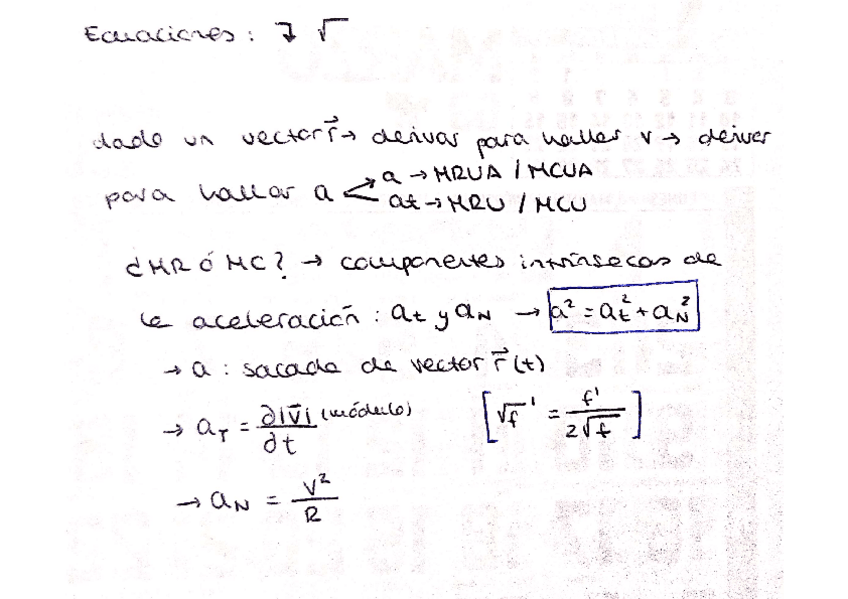 Ecuaciones: ↴ √
dado un vector r⃗ → derivar para hallar v → derivar
para hallar a < a → MRUA / MCUA
at → MRU / MCU
¿MR ó MC? → componentes intrínsecas de
la aceleración: at y aN → a² = at² + aN²
→ a: sacada de vector r⃗(t)
→ aT = ∂|v̄| (módulo) / ∂t [√f ' = f' / 2√f]
→ aN = V² / R